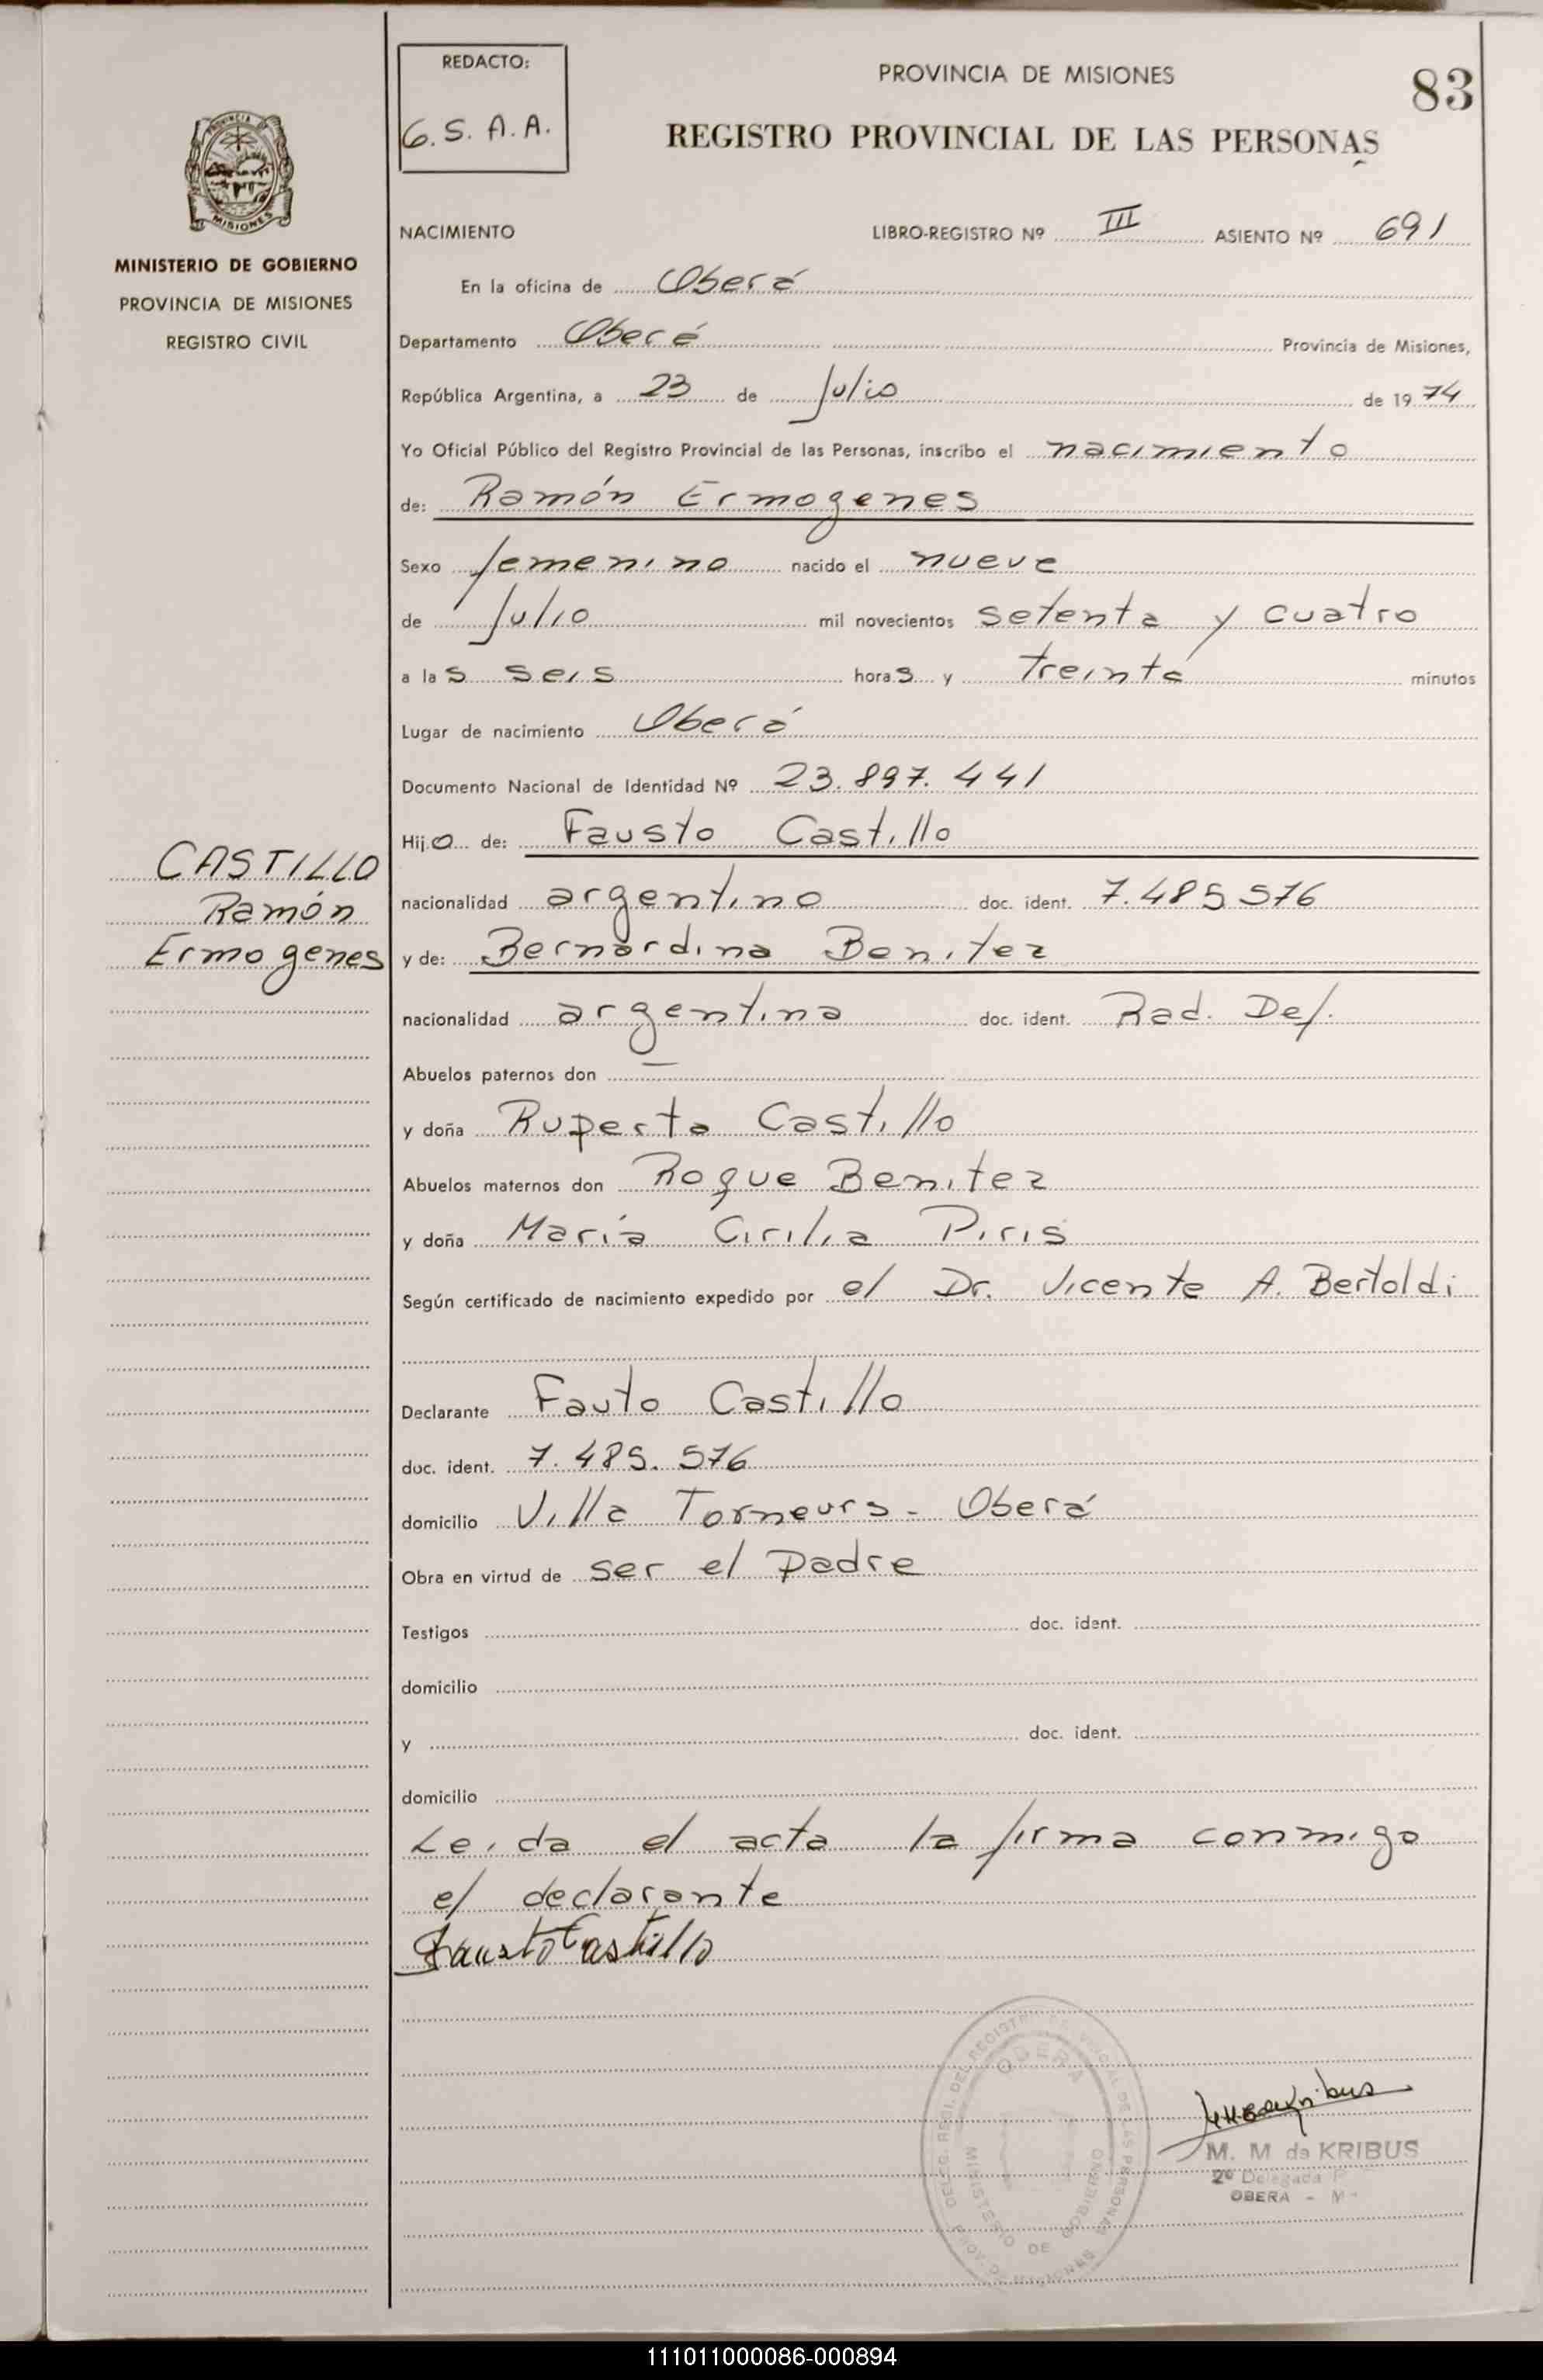 REDACTO:
G. S. A. A.
PROVINCIA DE MISIONES
83
REGISTRO PROVINCIAL DE LAS PERSONAS
PROVINCIA DE
MISIONES
MINISTERIO DE GOBIERNO
PROVINCIA DE MISIONES
REGISTRO CIVIL
NACIMIENTO
LIBRO-REGISTRO Nº III ASIENTO Nº 691
En la oficina de Oberá
Departamento Oberá Provincia de Misiones,
República Argentina, a 23 de Julio de 1974
Yo Oficial Público del Registro Provincial de las Personas, inscribo el nacimiento
de: Ramón Ermogenes
Sexo femenino nacido el nueve
de Julio mil novecientos setenta y cuatro
a las seis horas y treinta minutos
Lugar de nacimiento Oberá
Documento Nacional de Identidad Nº 23.897.441
Hijo de: Fausto Castillo
CASTILLO
Ramón
Ermogenes
nacionalidad argentino doc. ident. 7.485 576
y de: Bernardina Benitez
nacionalidad argentina doc. ident. Rad. Def.
Abuelos paternos don —
y doña Ruperta Castillo
Abuelos maternos don Roque Benitez
y doña María Cirilia Piris
Según certificado de nacimiento expedido por el Dr. Vicente A. Bertoldi
Declarante Fauto Castillo
doc. ident. 7.485.576
domicilio Villa Torneurs - Oberá
Obra en virtud de ser el padre
Testigos doc. ident.
domicilio
y doc. ident.
domicilio
Leida el acta la firma conmigo
el declarante
Fausto Castillo
OBERA
MINISTERIO DE GOBIERNO
M. M de KRIBUS
2º Delegada
OBERA -
111011000086-000894